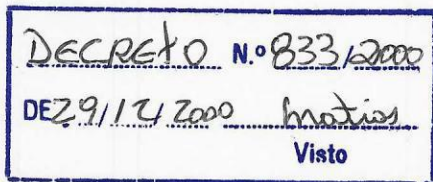 DECRETO N.º 833/2000
DE 29/12/2000
Visto